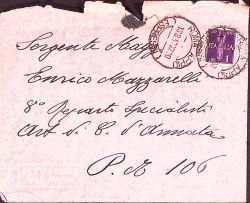 Sergente Magg
Enrico Mazzarelli
8° Reparto Specialisti
Art. di C. d'Armata
P. M 106
ITALIA
1